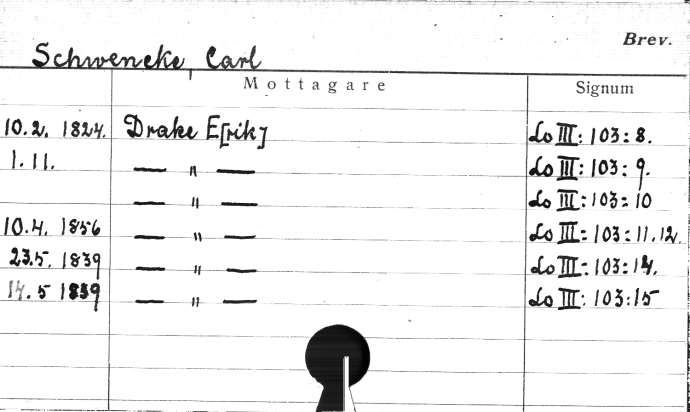 Brev.
Schwencke, Carl
Mottagare Signum
10.2. 1824. Drake E[rik] Lo III: 103: 8.
1.11. — " — Lo III: 103: 9.
— " — Lo III: 103: 10
10.4. 1856 — " — Lo III: 103: 11.12.
23.5. 1839 — " — Lo III: 103: 14.
14.5 1839 — " — Lo III: 103: 15